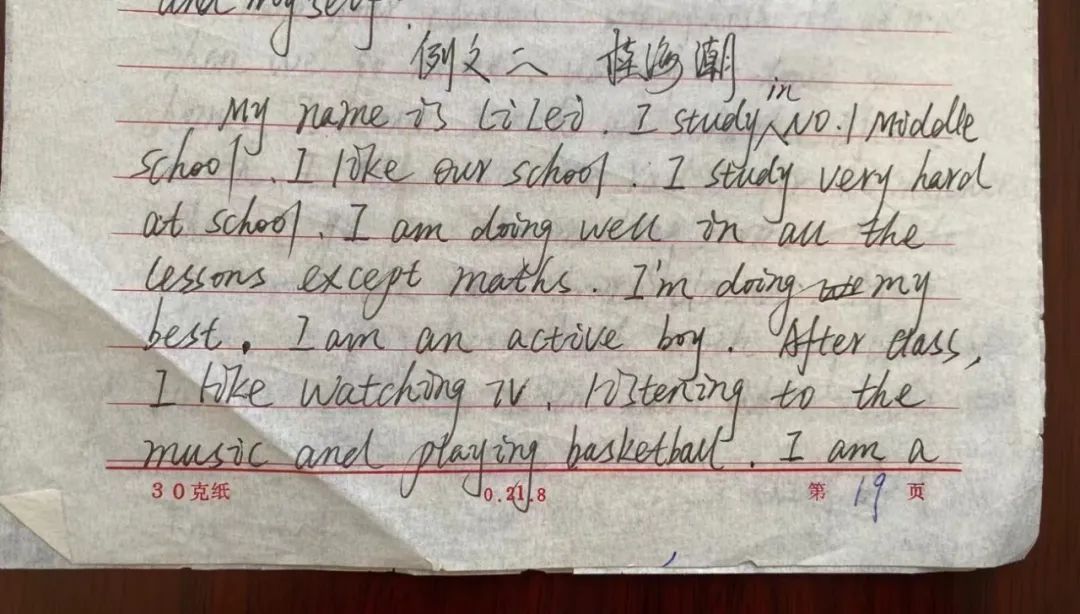 and myself.
例文二 桂海潮
My name is Li Lei. I study in NO.1 Middle
school. I like our school. I study very hard
at school. I am doing well in all the
lessons except maths. I'm doing my
best. I am an active boy. After class,
I like watching TV, listening to the
music and playing basketball. I am a
30克纸 0.21.8 第 19 页